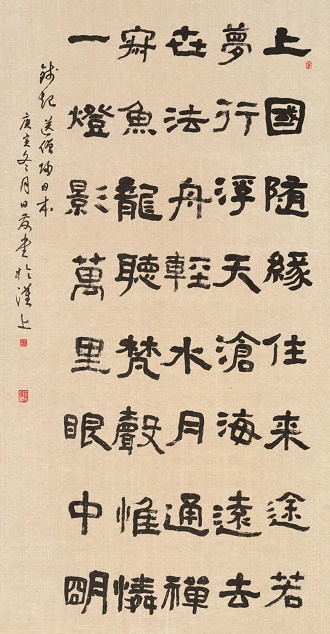 上國隨緣住來途若
夢行浮天滄海遠去
世法舟輕水月通禪
寂魚龍聽梵聲惟憐
一燈影萬里眼中明
錢起 送僧歸日本
庚寅冬月 書於漢上